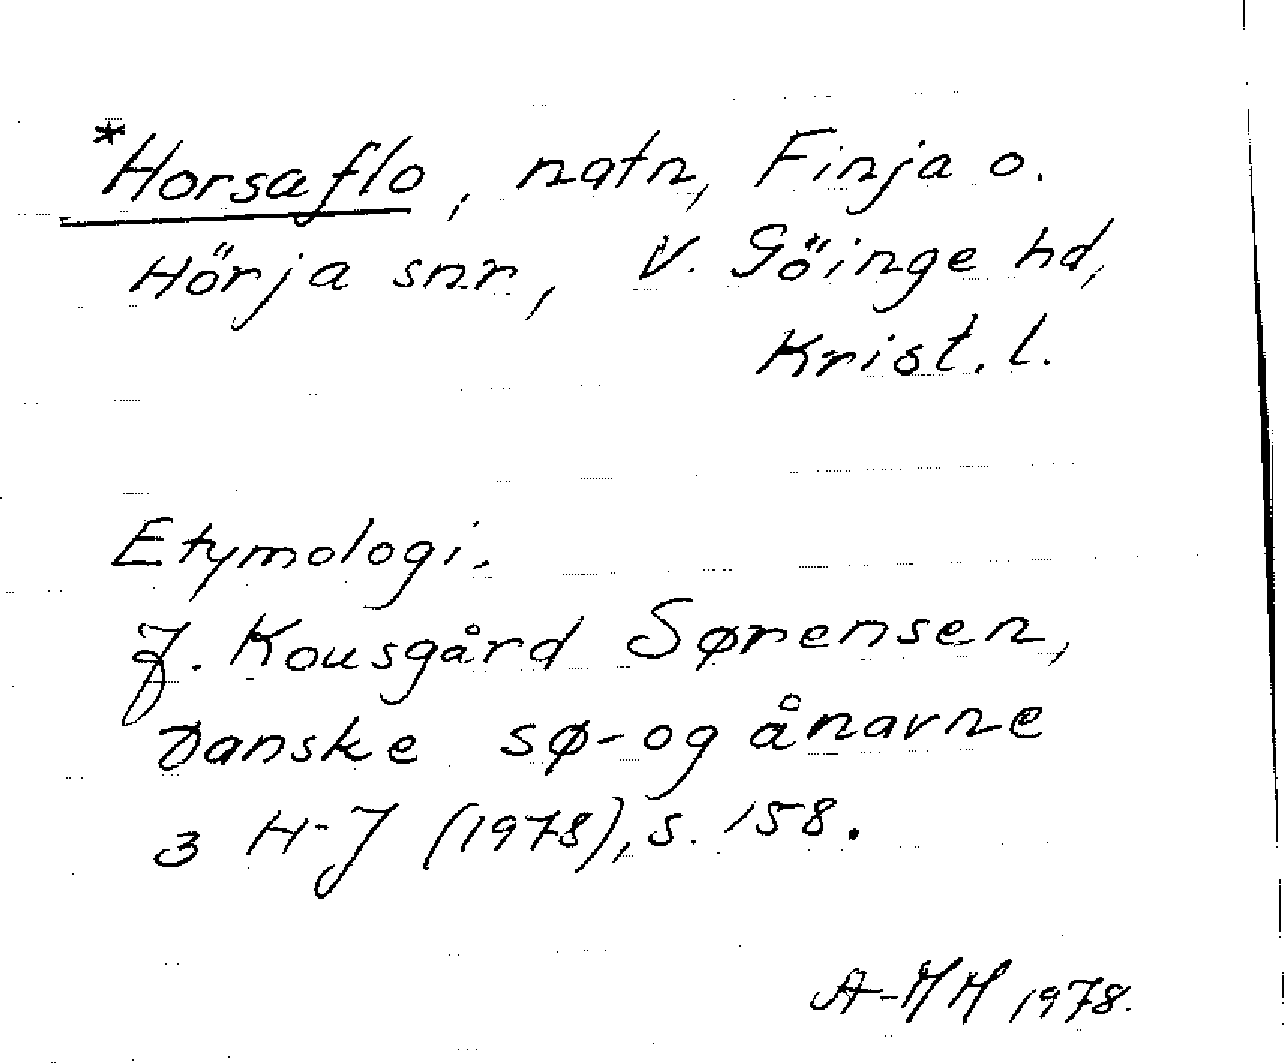 *Horsaflo, natn, Finja o.
Hörja snr, V. Göinge hd,
Krist. l.
Etymologi.
J. Kousgård Sørensen,
Danske sø- og ånavne
3 H-J (1978), s. 158.
A-MH 1978.